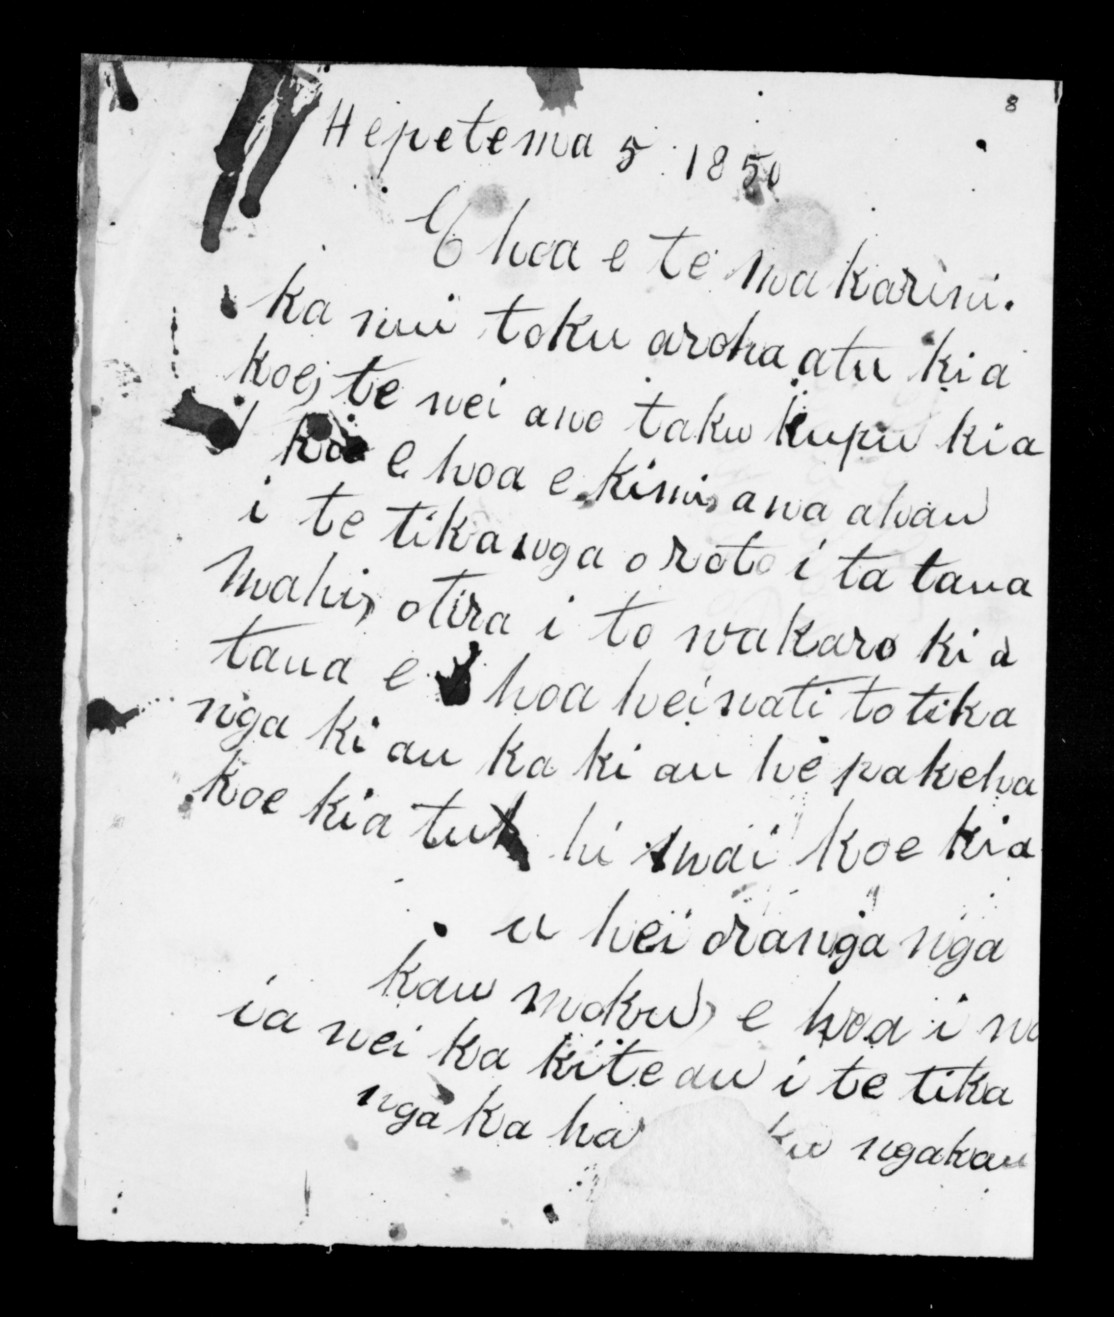 8
Hepetema 5 1850
E hoa e te makarini.
ka nui toku aroha atu kia
koe, te nei ano taku kupu kia
koe e hoa e kimi, ana ahau
i te tikanga o roto i ta taua
mahi, otira i to wakaro ki a
taua e hoa heinati to tika
nga ki au ka ki au he pakeha
koe kia tu hi mai koe kia
u hei oranga nga
kau moku, e hoa i no
ia nei ka kite au i te tika
nga ka ha ku ngakau